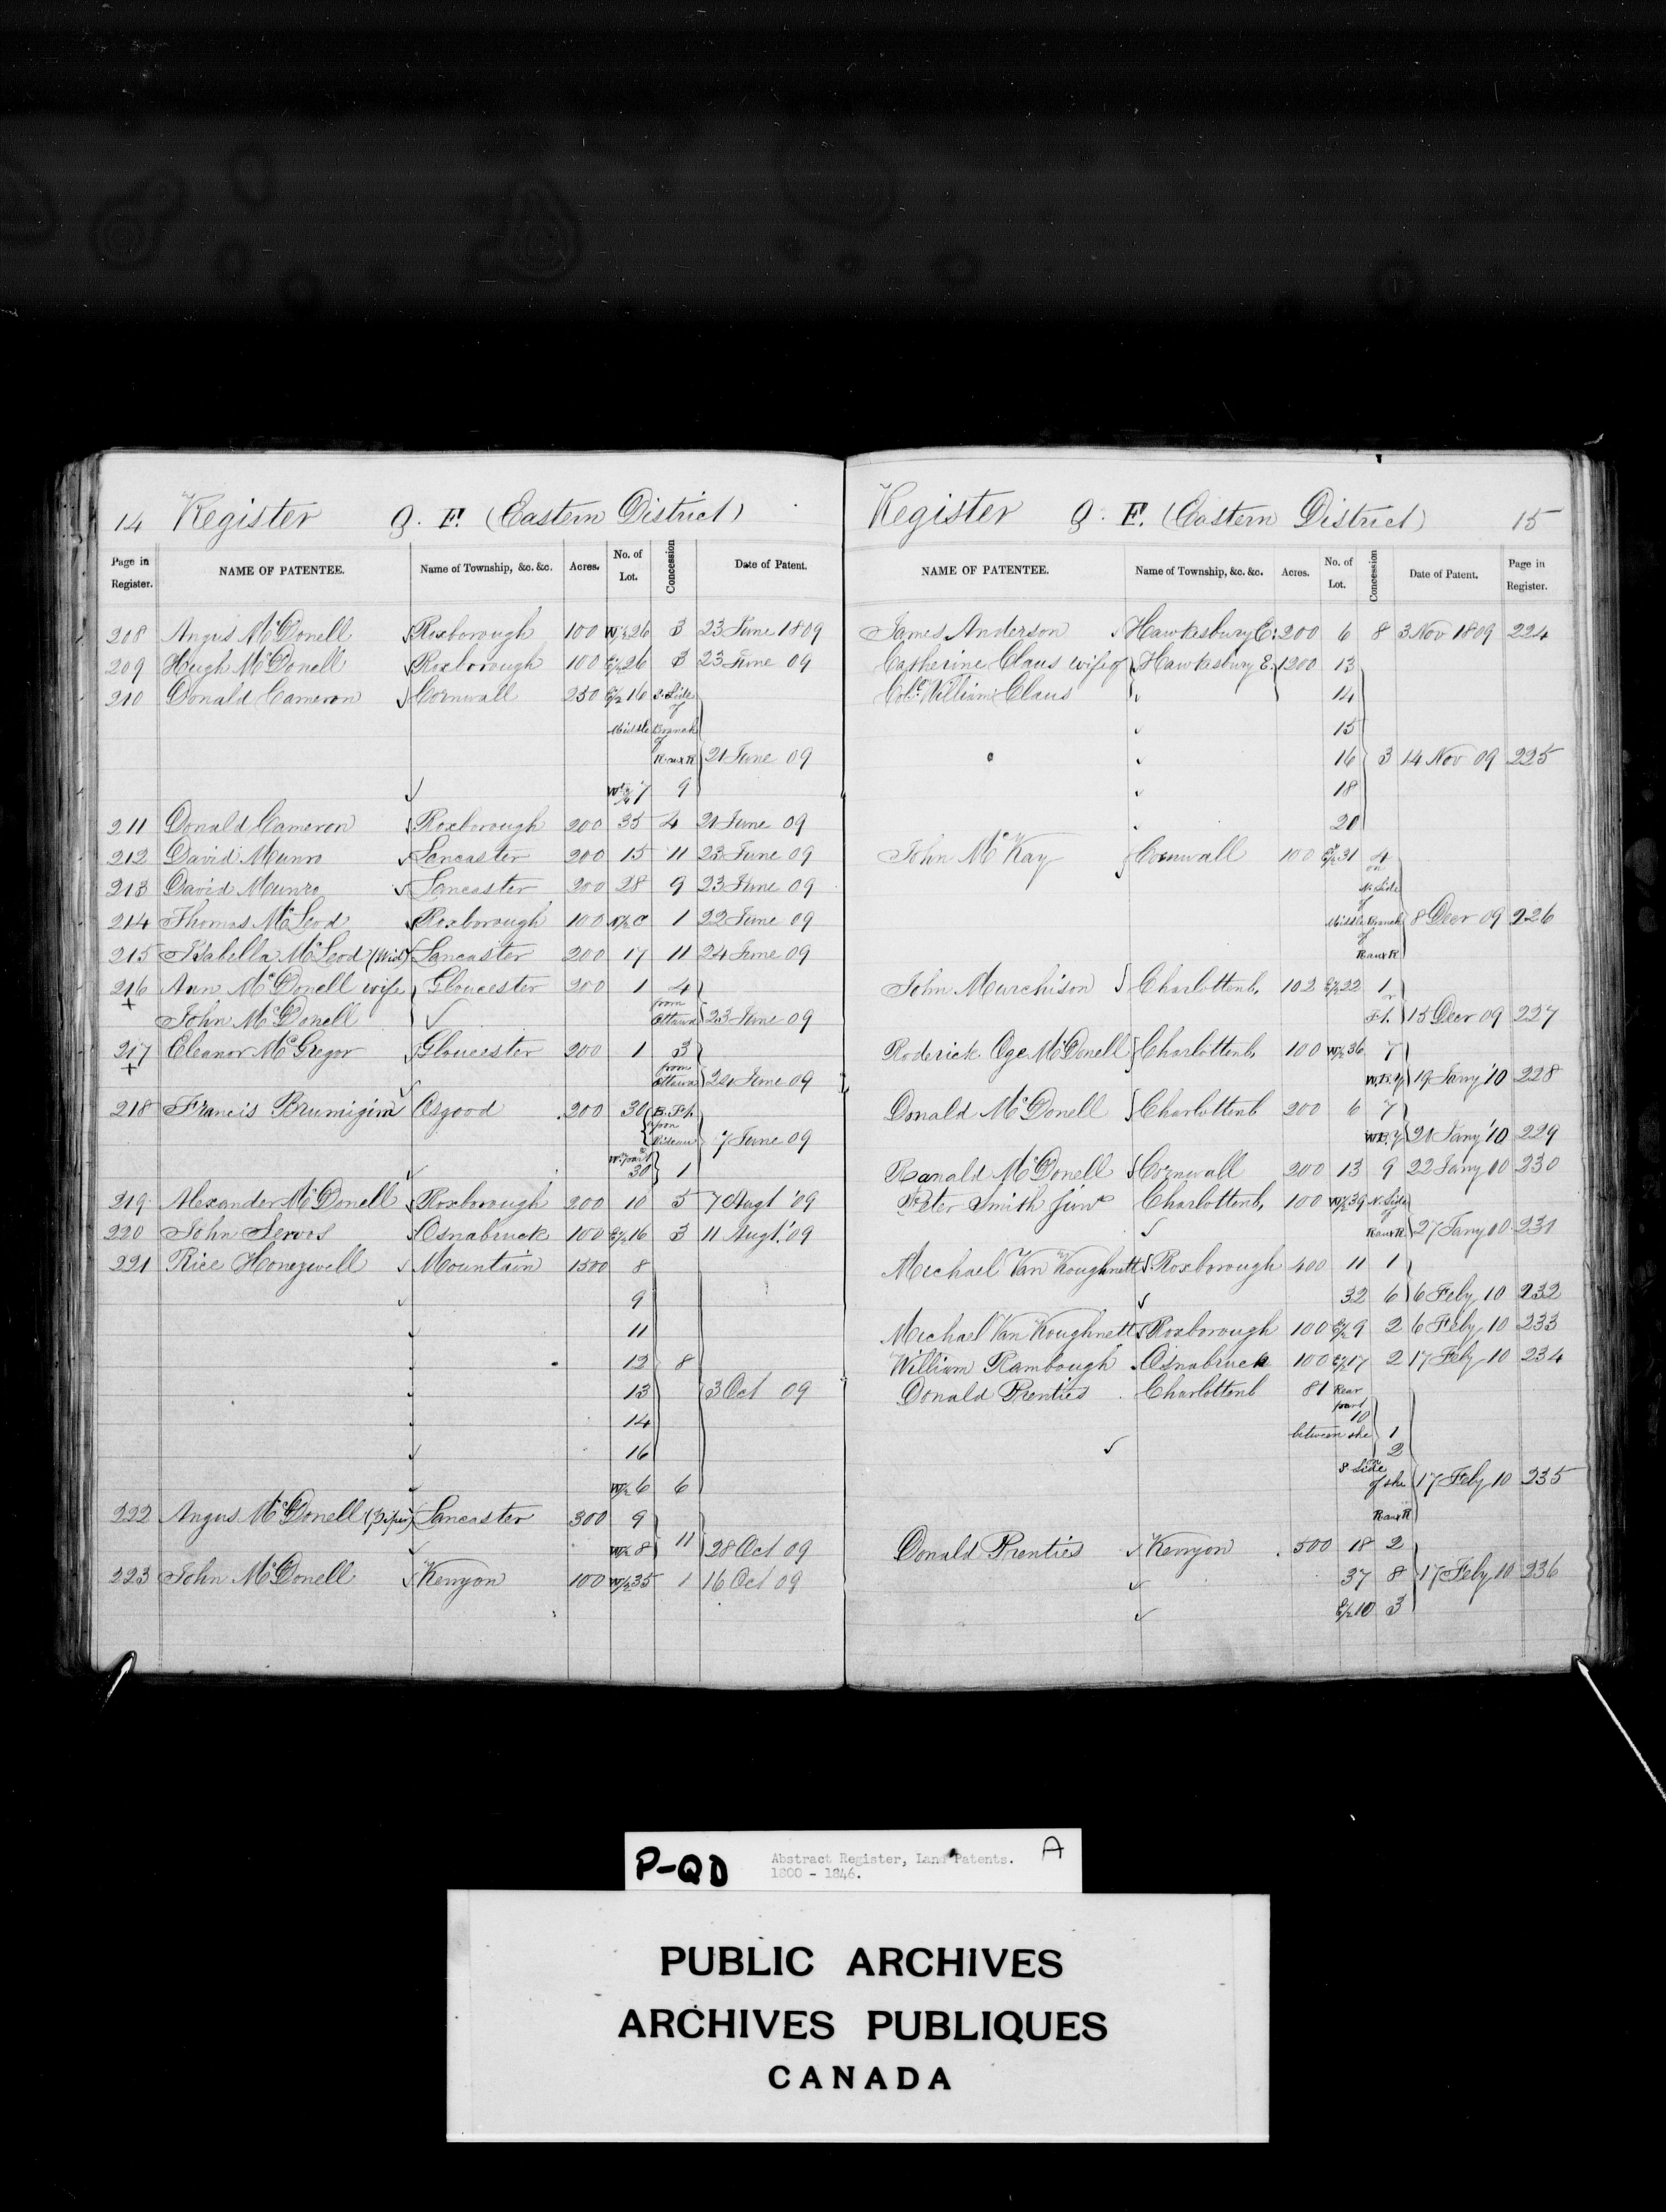 14 Register G. F. (Eastern District)
Page in Register. NAME OF PATENTEE. Name of Township, &c. &c. Acres. No. of Lot. Concession Date of Patent.
208 Angus McDonell Roxborough 100 W½ 26 3 23 June 1809
209 Hugh McDonell Roxborough 100 E½ 26 3 23 June 09
210 Donald Cameron Cornwall 250 E½ 16 S. Side
of
Middle Branch
of
Raux R 21 June 09
W½ 7 9
211 Donald Cameron Roxborough 200 35 4 21 June 09
212 David Munro Lancaster 200 15 11 23 June 09
213 David Munro Lancaster 200 28 9 23 June 09
214 Thomas McLeod Roxborough 100 C 1 22 June 09
215 Isabella McLeod (Wid) Lancaster 200 17 11 24 June 09
216 Ann McDonell wife Gloucester 200 1 4
+ from
John McDonell Ottawa 23 June 09
217 Eleanor McGregor Gloucester 200 1 3
+ from
Ottawa 24 June 09
218 Francis Osgood 200 30 B. Ft.
upon
Rideau 7 June 09
W. part
30 1
219 Alexander McDonell Roxborough 200 10 5 7 Augt '09
220 John Servos Osnabruck 100 E½ 16 3 11 Augt. '09
221 Rice Honeywell Mountain 1500 8
9
11
12 8
13 3 Oct 09
14
16
W½ 6 6
222 Angus McDonell Lancaster 300 9
W½ 8 11 28 Oct 09
223 John McDonell Kenyon 100 W½ 35 1 16 Oct 09
Register G. F. (Eastern District) 15
NAME OF PATENTEE. Name of Township, &c. &c. Acres. No. of Lot. Concession Date of Patent. Page in Register.
James Anderson Hawkesbury E. 200 6 8 3 Nov 1809 224
Catherine Claus wife of Hawkesbury E. 1200 13
Col. William Claus 14
15
16 3 14 Nov 09 225
18
20
John McKay Cornwall 100 E½ 31 4
on
N. Side
of
Middle Branch 8 Decr 09 226
of
Raux R
John Murchison Charlottenb. 102 E½ 22 1
or
Ft. 15 Decr 09 227
Roderick Oge McDonell Charlottenb. 100 W½ 36 7
19 Jany '10 228
Donald McDonell Charlottenb 200 6 7
21 Jany '10 229
Ranald McDonell Cornwall 200 13 9 22 Jany 10 230
Peter Smith Junr Charlottenb. 100 W½ 39 N. Side
of
Raux R. 27 Jany 10 231
Michael Van Koughnett Roxborough 400 11 1
32 6 6 Feby 10 232
Michael Van Koughnett Roxborough 100 E½ 9 2 6 Feby 10 233
William Rambough Osnabruck 100 E½ 17 2 17 Feby 10 234
Donald Prenties Charlottenb 81 Rear
part
10
between the 1
2
S. Side
of the 17 Feby 10 235
Raux R
Donald Prenties Kenyon 500 18 2
37 8 17 Feby 10 236
E½ 10 3
P-QD Abstract Register, Land Patents. A
1800 - 1846.
PUBLIC ARCHIVES
ARCHIVES PUBLIQUES
CANADA